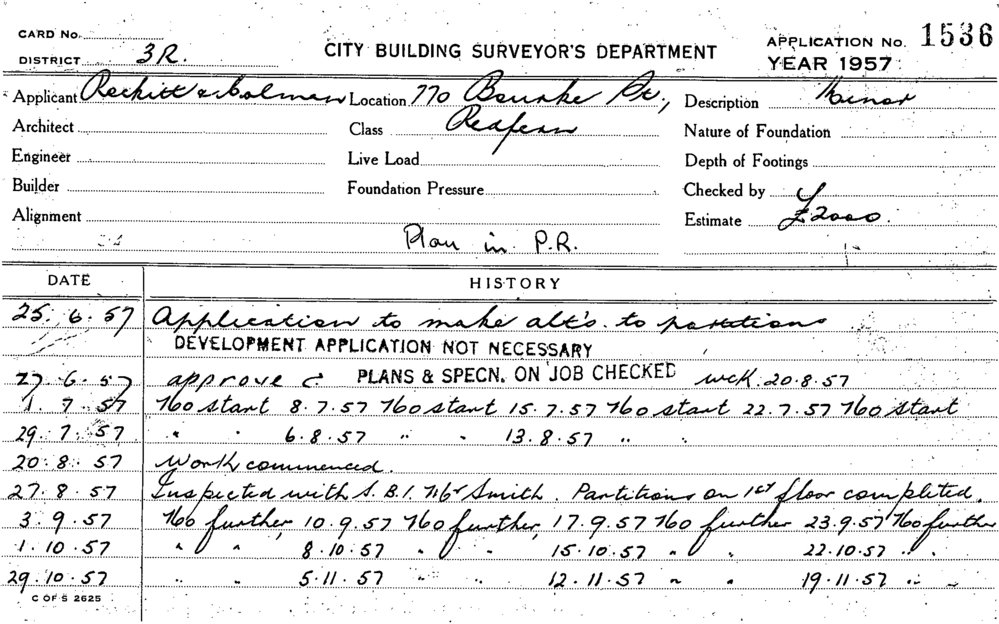 CARD No. APPLICATION No. 1536
DISTRICT 3R. CITY BUILDING SURVEYOR'S DEPARTMENT YEAR 1957
Applicant Reckitt & Colman Location 770 Bourke St., Description Minor
Architect Class Redfern Nature of Foundation
Engineer Live Load Depth of Footings
Builder Foundation Pressure Checked by
Alignment Estimate £2000.
Plan in P.R.
DATE HISTORY
25. 6. 57 Application to make alt's. to partitions
DEVELOPMENT APPLICATION NOT NECESSARY
27. 6. 57 approve C. PLANS & SPECN. ON JOB CHECKED WCK. 20.8.57
1. 7. 57 No start 8.7.57 No start 15.7.57 No start 22.7.57 No start
29. 7. 57 " " 6.8.57 " " 13.8.57 " "
20. 8. 57 Work commenced.
27. 8. 57 Inspected with S.B.I. Mr Smith. Partitions on 1st floor completed.
3. 9. 57 No further, 10.9.57 No further, 17.9.57 No further 23.9.57 No further
1. 10. 57 " " 8.10.57 " " 15.10.57 " " 22.10.57 " "
29. 10. 57 " " 5.11.57 " " 12.11.57 " " 19.11.57 " "
C OF S 2625